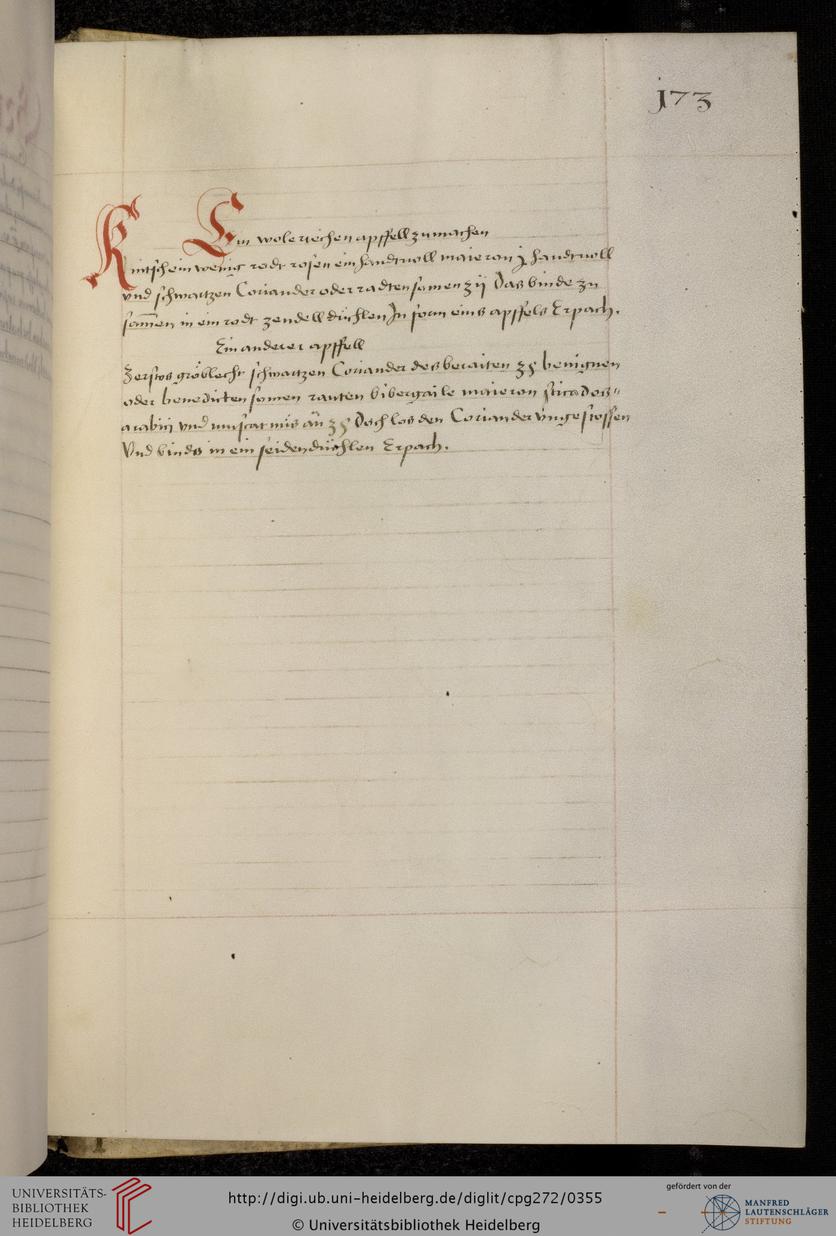 173
Ein wolriechen apffell zumachen
Knitsch ein wenig rodt rosen ein handtvoll maieron j handtvoll
vnd schwartzen Coriander oder radten somen ʒ ij Das binde zu
sam̄en in ein rodt zendell diichlen In form eins apffels Erpach.
Ein anderer apffell
Zerstos gröblecht schwartzen Coriander des beraiten benignen
oder benedicten somen rauten bibergaile maieron sticados
arabici vnd muscat nus Doch los den Coriander vngestossen
Vnd binds in ein seiden diichlen Erpach.
UNIVERSITÄTS-
BIBLIOTHEK
HEIDELBERG
http://digi.ub.uni-heidelberg.de/diglit/cpg272/0355
© Universitätsbibliothek Heidelberg
gefördert von der
MANFRED
LAUTENSCHLÄGER
STIFTUNG